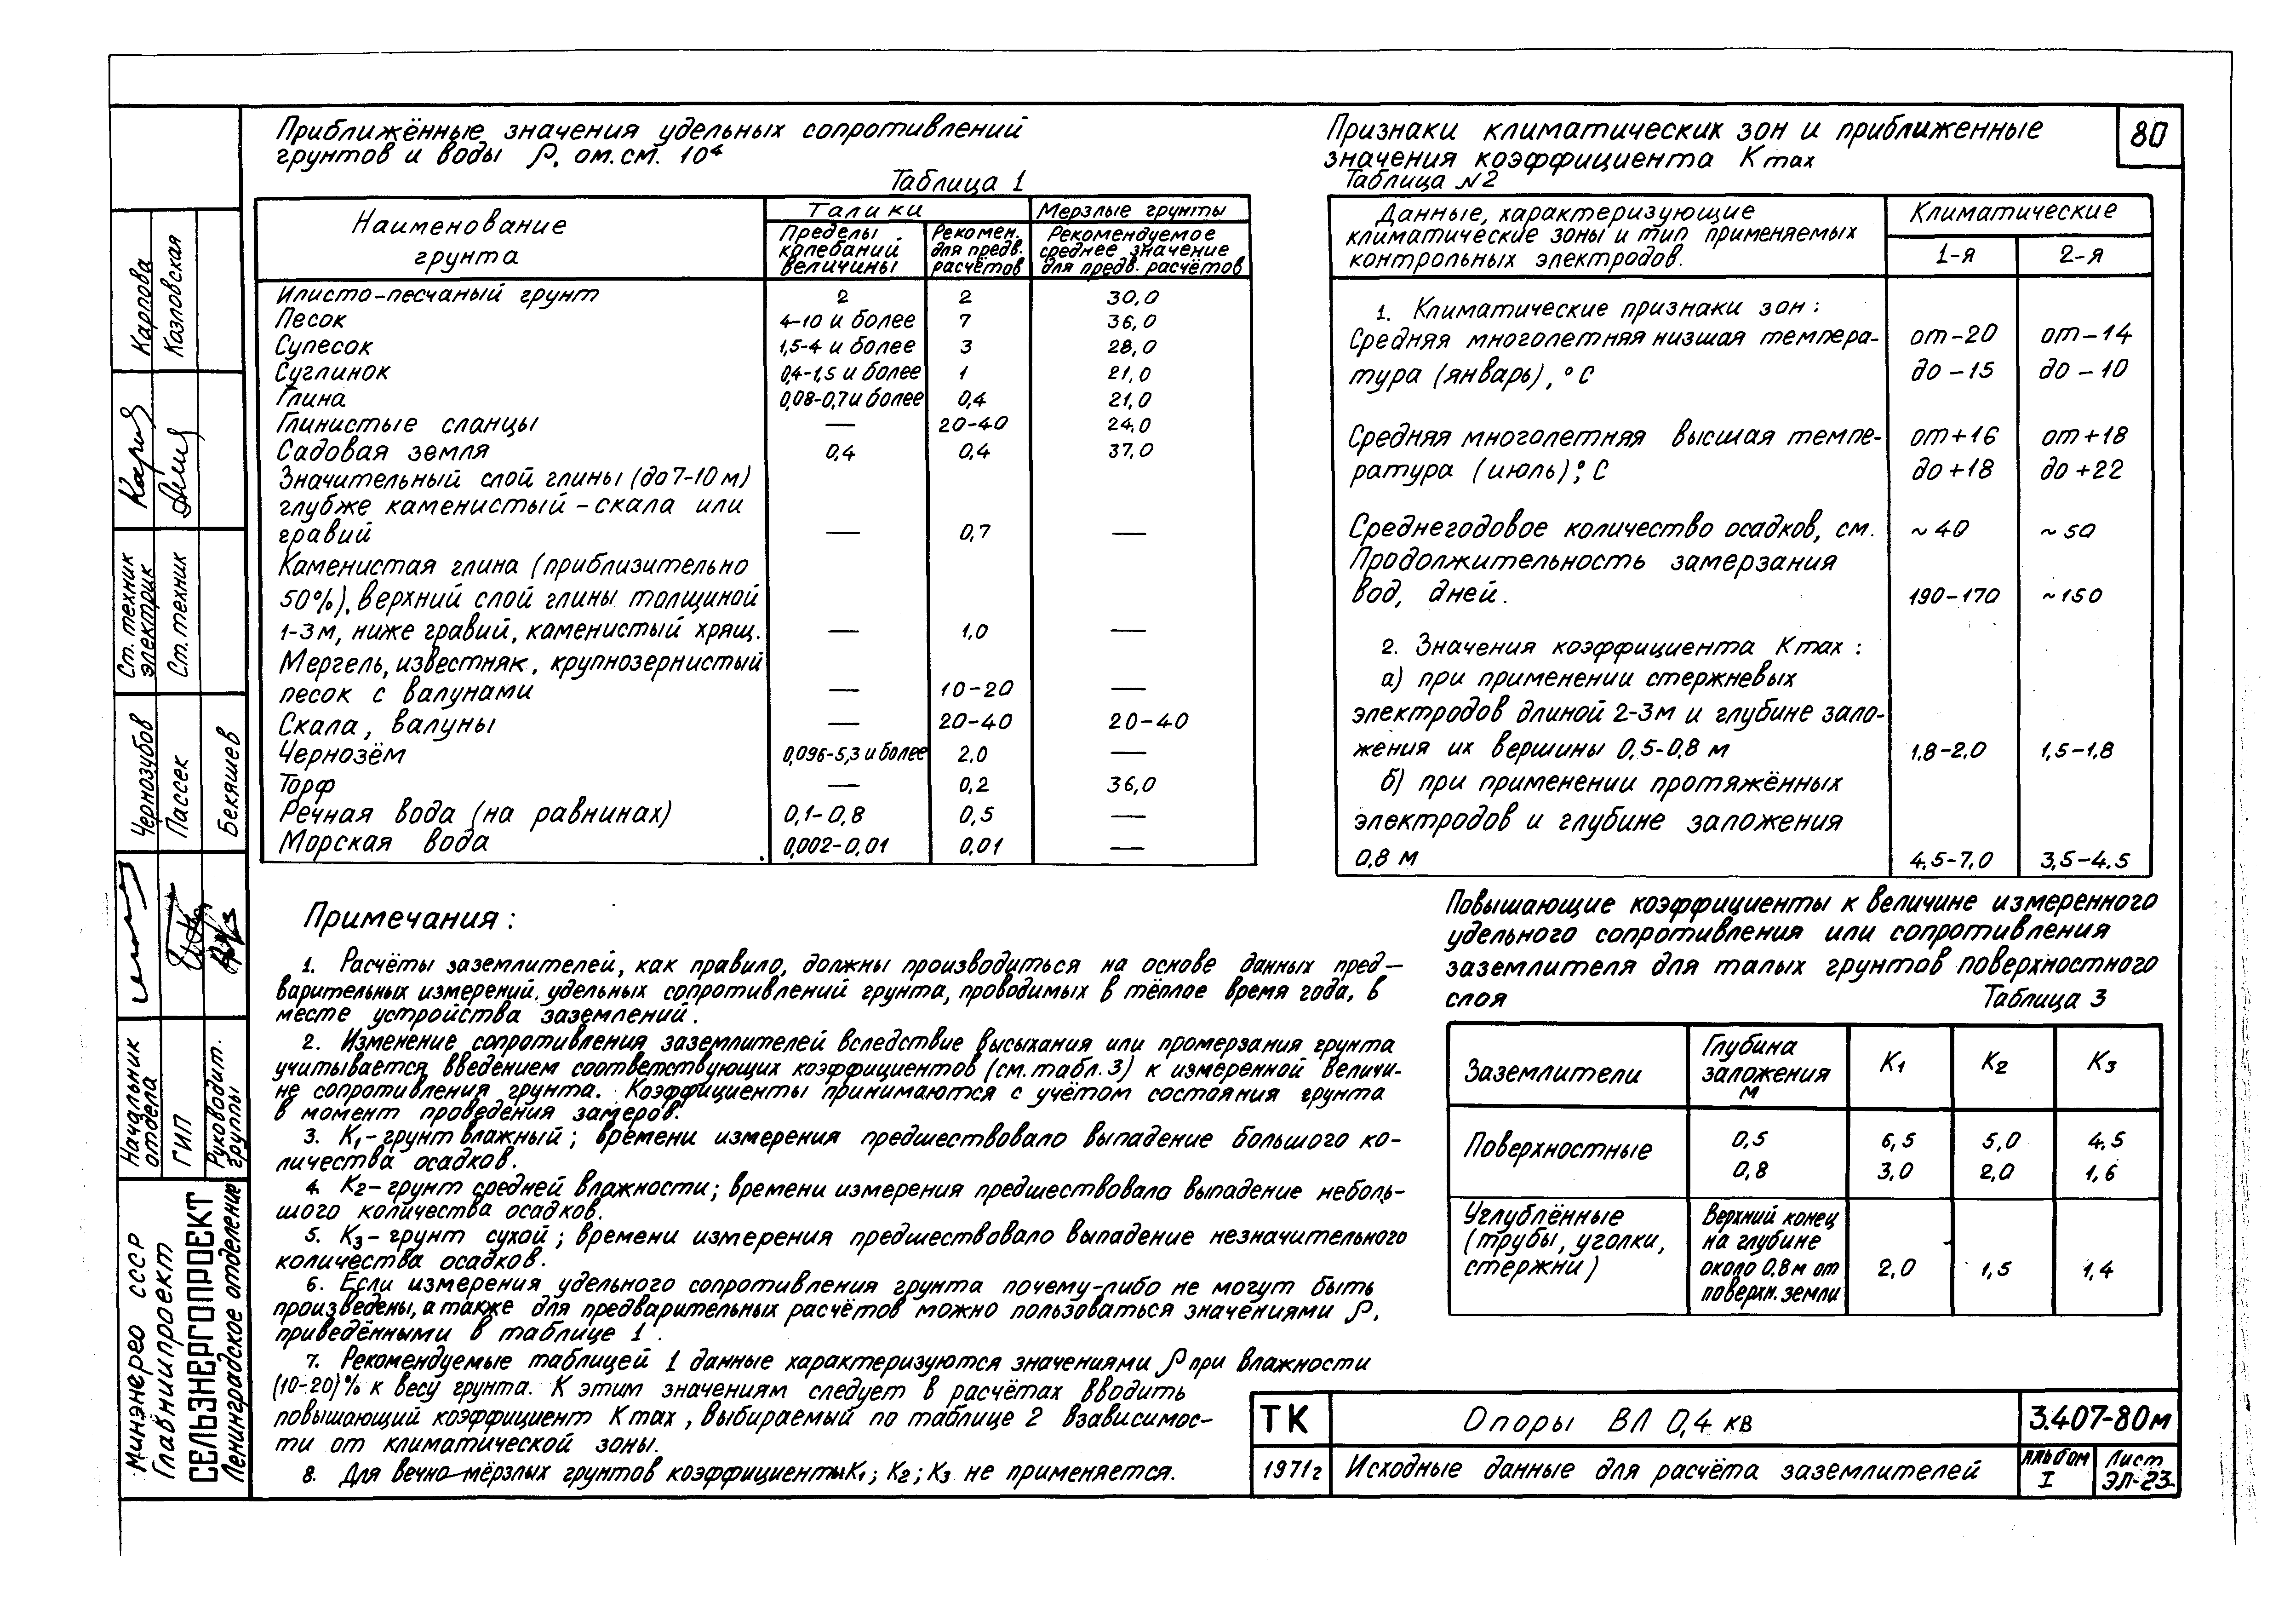 80
Приближённые значения удельных сопротивлений
грунтов и воды ρ, ом.см. 10⁴
Таблица 1
Наименование
грунта
Талики
Мерзлые грунты
Пределы
колебаний
величины
Рекомен.
для предв.
расчётов
Рекомендуемое
среднее значение
для предв. расчётов
Илисто-песчаный грунт 2 2 30,0
Песок 4-10 и более 7 36,0
Супесок 1,5-4 и более 3 28,0
Суглинок 0,4-1,5 и более 1 21,0
Глина 0,08-0,7 и более 0,4 21,0
Глинистые сланцы — 20-40 24,0
Садовая земля 0,4 0,4 37,0
Значительный слой глины (до 7-10 м)
глубже каменистый - скала или
гравий — 0,7 —
Каменистая глина (приблизительно
50%), верхний слой глины толщиной
1-3м, ниже гравий, каменистый хрящ. — 1,0 —
Мергель, известняк, крупнозернистый
песок с валунами — 10-20 —
Скала, валуны — 20-40 20-40
Чернозём 0,096-5,3 и более 2,0 —
Торф — 0,2 36,0
Речная вода (на равнинах) 0,1-0,8 0,5 —
Морская вода 0,002-0,01 0,01 —
Признаки климатических зон и приближенные
значения коэффициента К max
Таблица №2
Данные, характеризующие
климатические зоны и тип применяемых
контрольных электродов.
Климатические
1-я 2-я
1. Климатические признаки зон:
Средняя многолетняя низшая темпера- от-20 от-14
тура (январь), °С до-15 до-10
Средняя многолетняя высшая темпе- от+16 от+18
ратура (июль), °С до+18 до+22
Среднегодовое количество осадков, см. ~40 ~50
Продолжительность замерзания
вод, дней. 190-170 ~150
2. Значения коэффициента К max:
а) при применении стержневых
электродов длиной 2-3м и глубине зало-
жения их вершины 0,5-0,8 м 1,8-2,0 1,5-1,8
б) при применении протяжённых
электродов и глубине заложения
0,8 м 4,5-7,0 3,5-4,5
Повышающие коэффициенты к величине измеренного
удельного сопротивления или сопротивления
заземлителя для талых грунтов поверхностного
слоя Таблица 3
Заземлители
Глубина
заложения
м
К1 К2 К3
Поверхностные
0,5 6,5 5,0 4,5
0,8 3,0 2,0 1,6
Углублённые
(трубы, уголки,
стержни)
Верхний конец
на глубине
около 0,8 м от
поверхн. земли
2,0 1,5 1,4
Примечания:
1. Расчёты заземлителей, как правило, должны производиться на основе данных пред-
варительных измерений, удельных сопротивлений грунта, проводимых в тёплое время года, в
месте устройства заземлений.
2. Изменение сопротивления заземлителей вследствие высыхания или промерзания грунта
учитывается введением соответствующих коэффициентов (см. табл. 3) к измеренной величи-
не сопротивления грунта. Коэффициенты принимаются с учётом состояния грунта
в момент проведения замеров.
3. К1 - грунт влажный; времени измерения предшествовало выпадение большого ко-
личества осадков.
4. К2 - грунт средней влажности; времени измерения предшествовала выпадение неболь-
шого количества осадков.
5. К3 - грунт сухой; времени измерения предшествовало выпадение незначительного
количества осадков.
6. Если измерения удельного сопротивления грунта почему-либо не могут быть
произведены, а также для предварительных расчётов можно пользоваться значениями ρ,
приведёнными в таблице 1.
7. Рекомендуемые таблицей 1 данные характеризуются значениями ρ при влажности
(10-20)% к весу грунта. К этим значениям следует в расчётах вводить
повышающий коэффициент К max, выбираемый по таблице 2 взависимос-
ти от климатической зоны.
8. Для вечно-мёрзлых грунтов коэффициенты К1; К2; К3 не применяется.
ТК
1971г
Опоры ВЛ 0,4 кв
Исходные данные для расчёта заземлителей
3.407-80м
Альбом
I
Лист
ЭЛ-23
Карпова
Козловская
Ст. техник
электрик
Ст. техник
Чернозубов
Пассек
Бекяшев
Начальник
отдела
ГИП
Руководит.
группы
Минэнерго СССР
Главниипроект
СЕЛЬЭНЕРГОПРОЕКТ
Ленинградское отделение